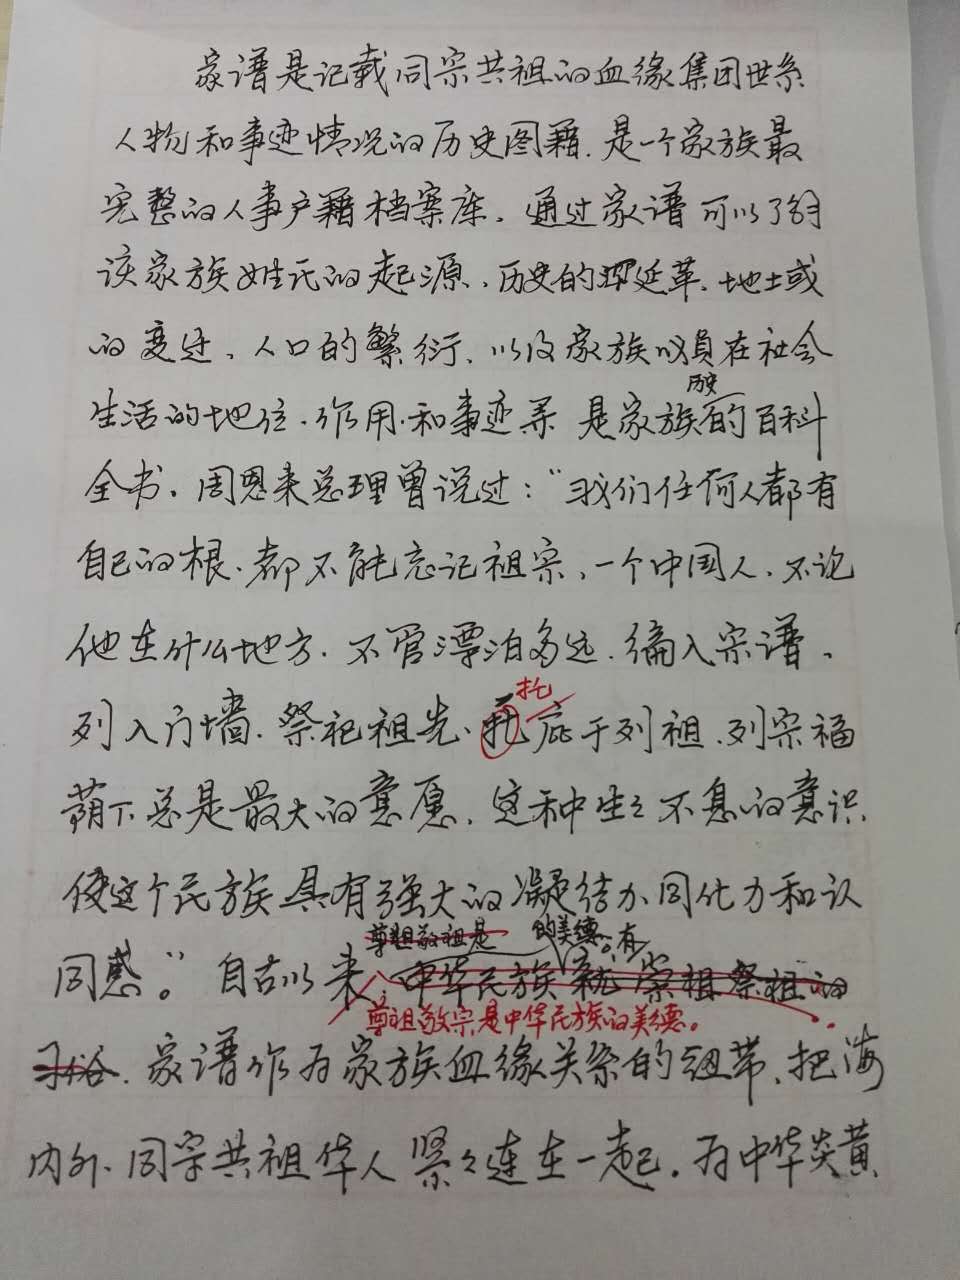 家谱是记载同宗共祖的血缘集团世系
人物和事迹情况的历史图籍.是一个家族最
完整的人事户籍档案库。通过家谱可以了解
该家族姓氏的起源、历史的延革、地土或
的变迁、人口的繁衍、以及家族成員在社会
历史
生活的地位、作用、和事迹等 是家族的百科
全书。周恩来总理曾说过：“我们任何人都有
自己的根、都不能忘记祖宗、一个中国人、不论
他在什么地方、不管漂泊多远、编入宗谱、
托
列入门墙、祭祀祖先、托庇于列祖、列宗福
荫下总是最大的意愿、这种生々不息的意识
使这个民族具有强大的凝结力、同化力和认
尊祖敬祖是 的美德。有
同感。”自古以来，中华民族就 崇祖祭祖的
尊祖敬宗是中华民族的美德。
习俗.家谱作为家族血缘关系的纽带、把海
内外、同宗共祖华人紧々连在一起。为中华炎黄